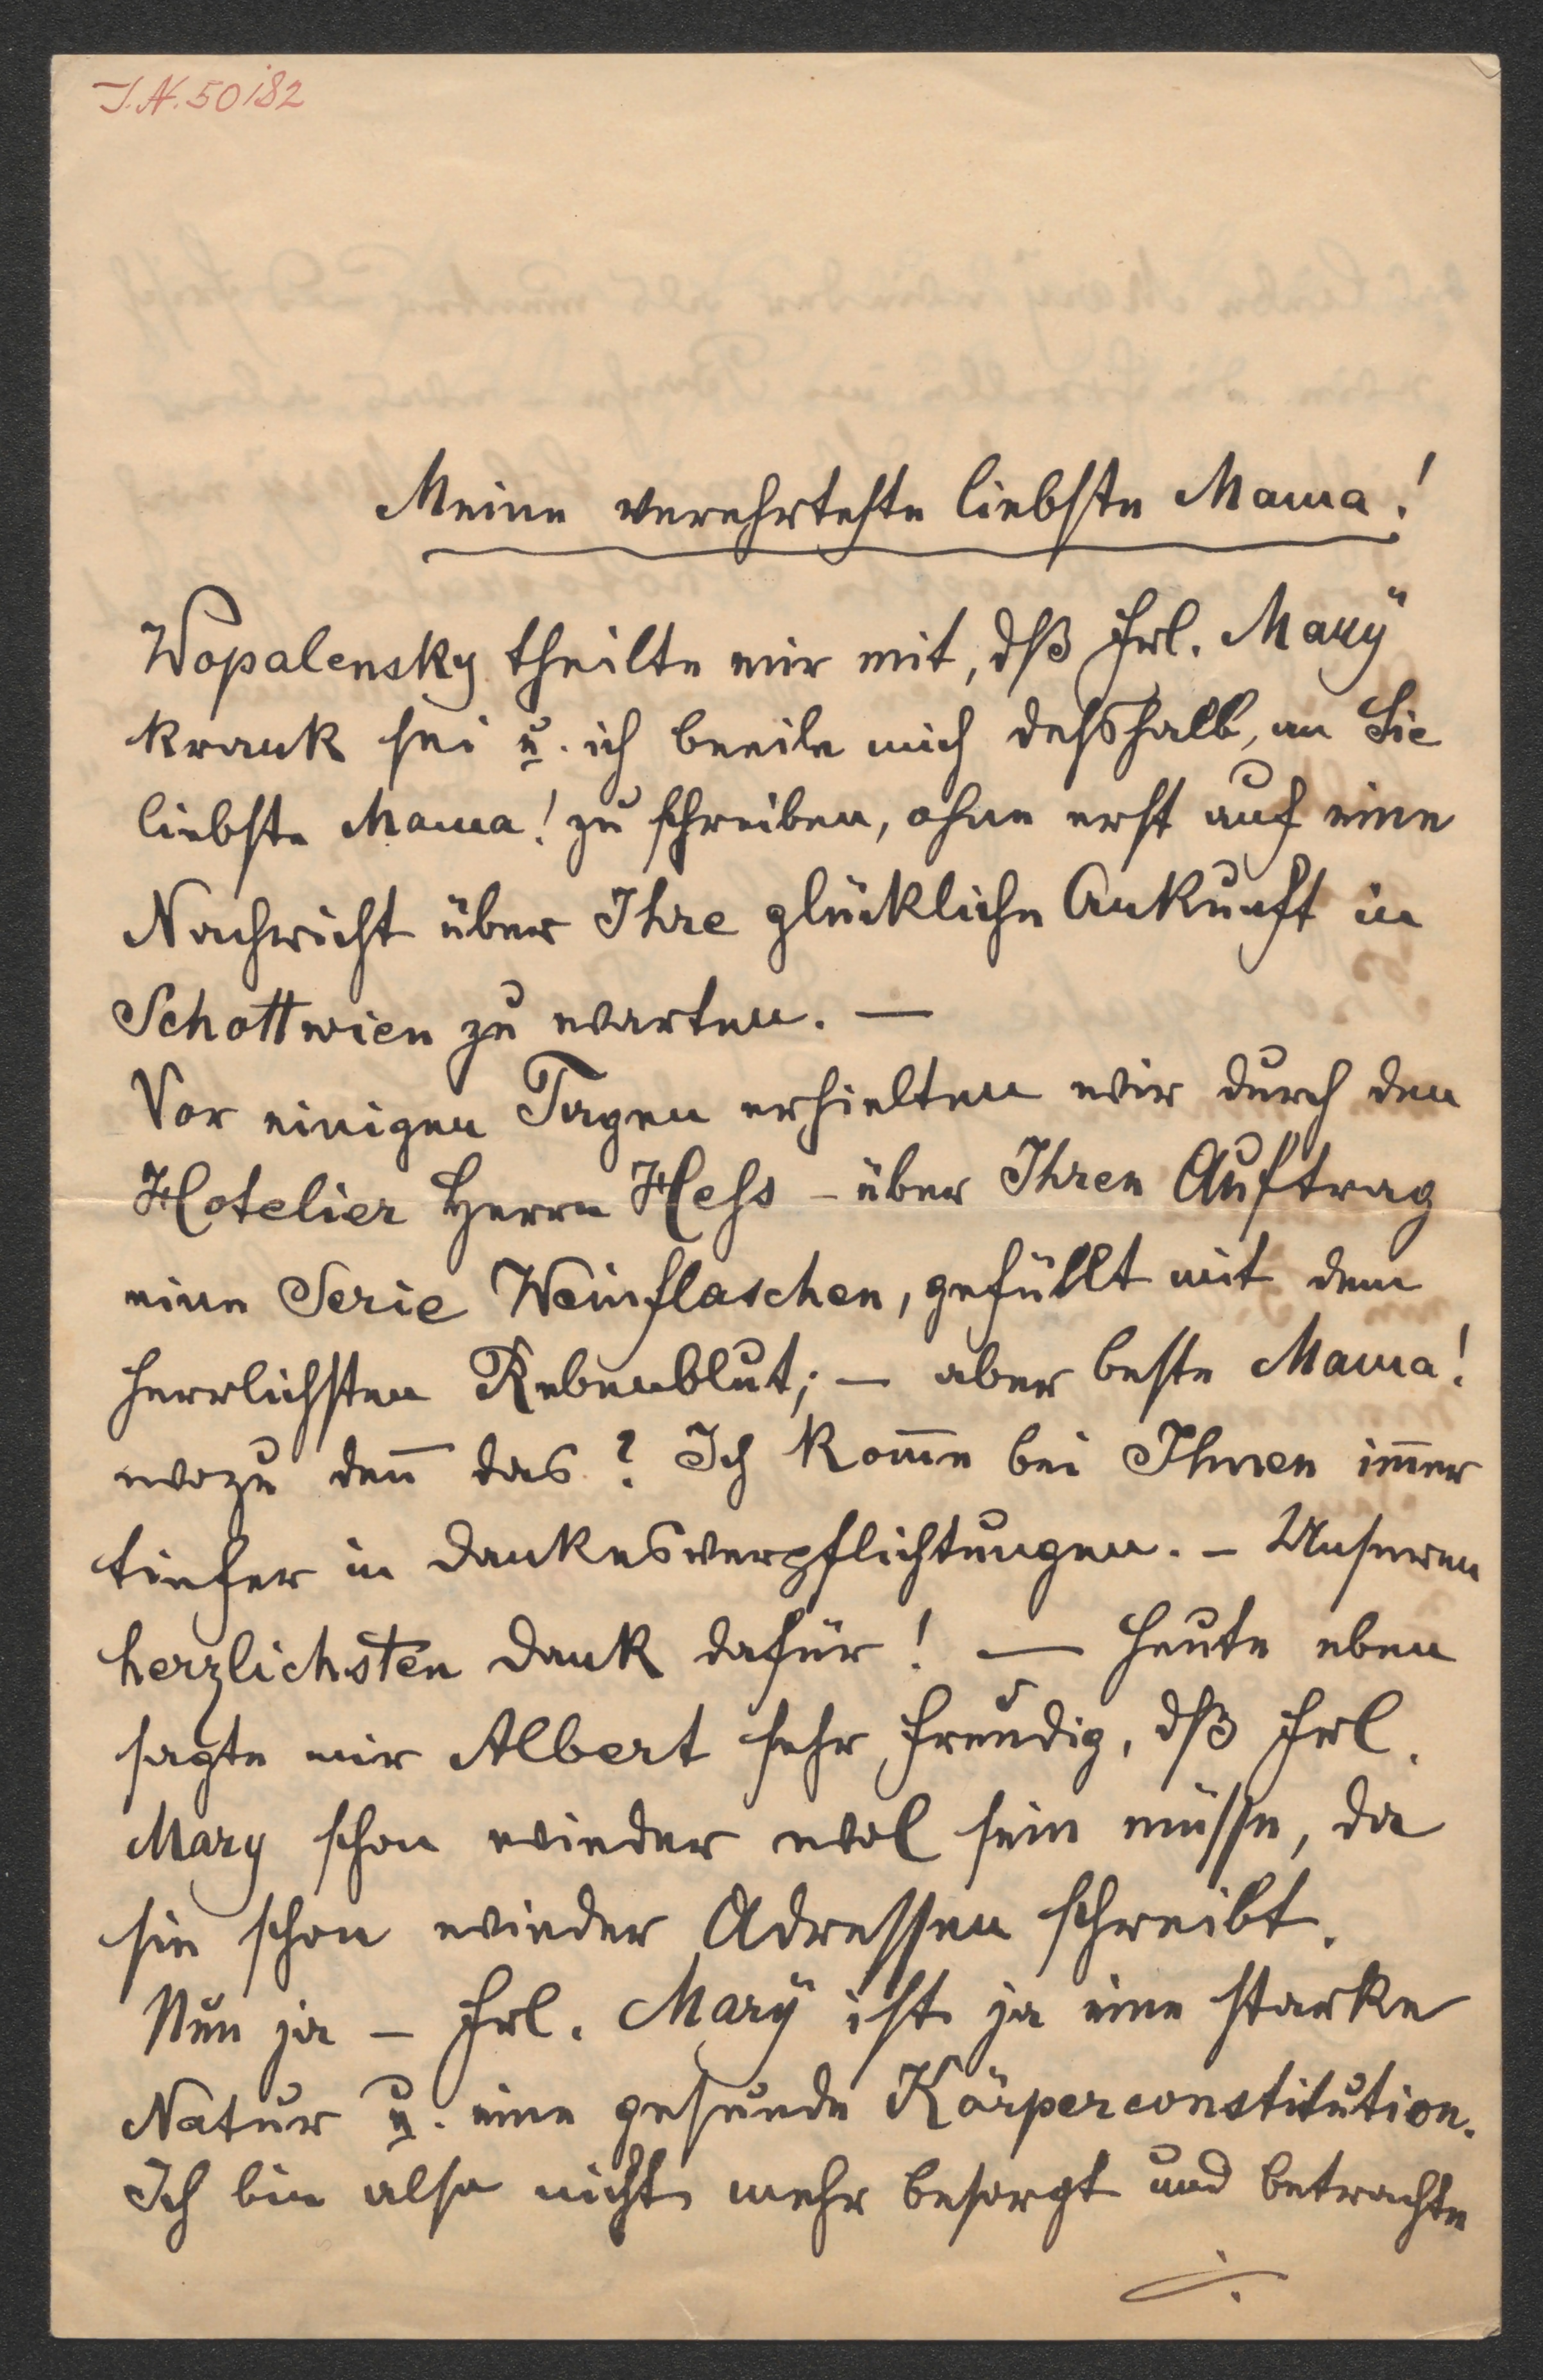 I.N. 50182
Meine verehrteste liebste Mama!
Wopalensky theilte mir mit, dß Frl. Marÿ
krank sei u. ich beeile mich deßhalb, an Sie
liebste Mama! zu schreiben, ohne erst auf eine
Nachricht über Ihre glückliche Ankunft in
Schottwien zu warten. —
Vor einigen Tagen erhielten wir durch den
Hotelier Herrn Heſs – über Ihren Auftrag
eine Serie Weinflaschen, gefüllt mit dem
herrlichsten Rebenblut; — aber beste Mama!
wozu den̄ das? Ich kom̄e bei Ihnen im̄er
tiefer in Dankesverpflichtungen. – Unseren
herzlichsten Dank dafür! — Heute eben
sagte mir Albert sehr freudig, dß Frl.
Mary schon wieder wol sein müsse, da
sie schon wieder Adressen schreibt.
Nun ja – Frl. Marÿ ist ja eine starke
Natur u. eine gesunde Körperconstitution.
Ich bin also nicht mehr besorgt und betrachte
./.